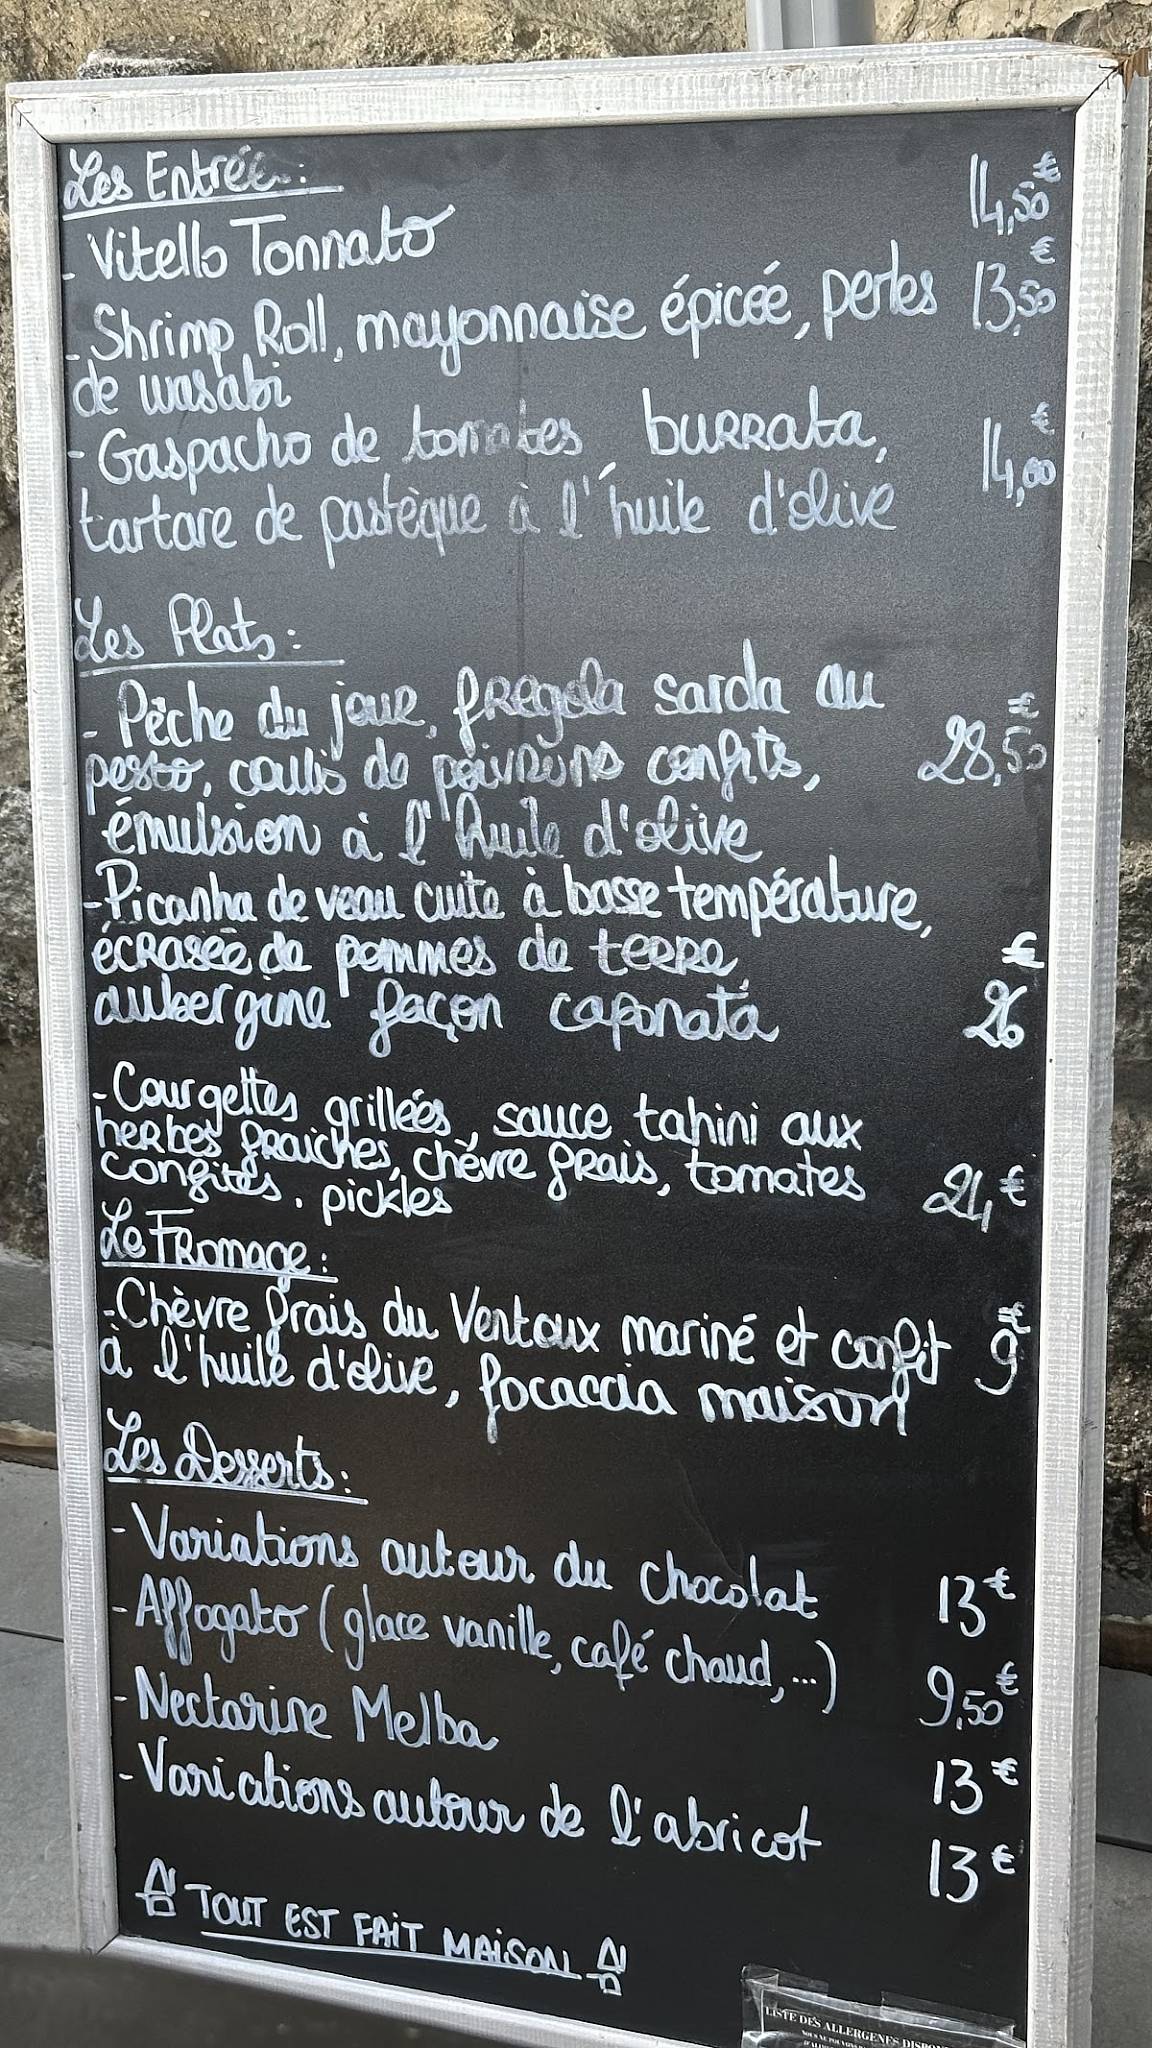 Les Entrées :
- Vitello Tonnato 14,50€
- Shrimp Roll, mayonnaise épicée, perles 13,50€
de wasabi
- Gaspacho de tomates burrata, 14,00€
tartare de pastèque à l'huile d'olive
Les Plats :
- Pêche du jour, fregola sarda au
pesto, coulis de poivrons confits, 28,50€
émulsion à l'huile d'olive
- Picanha de veau cuite à basse température,
écrasée de pommes de terre,
aubergine façon caponata 26€
- Courgettes grillées, sauce tahini aux
herbes fraiches, chèvre frais, tomates
confites, pickles 21,€
Le Fromage :
- Chèvre frais du Ventoux mariné et confit 9€
à l'huile d'olive, focaccia maison
Les Desserts :
- Variations autour du chocolat 13€
- Affogato (glace vanille, café chaud, ...) 9,50€
- Nectarine Melba 13€
- Variations autour de l'abricot 13€
TOUT EST FAIT MAISON
LISTE DES ALLERGENES